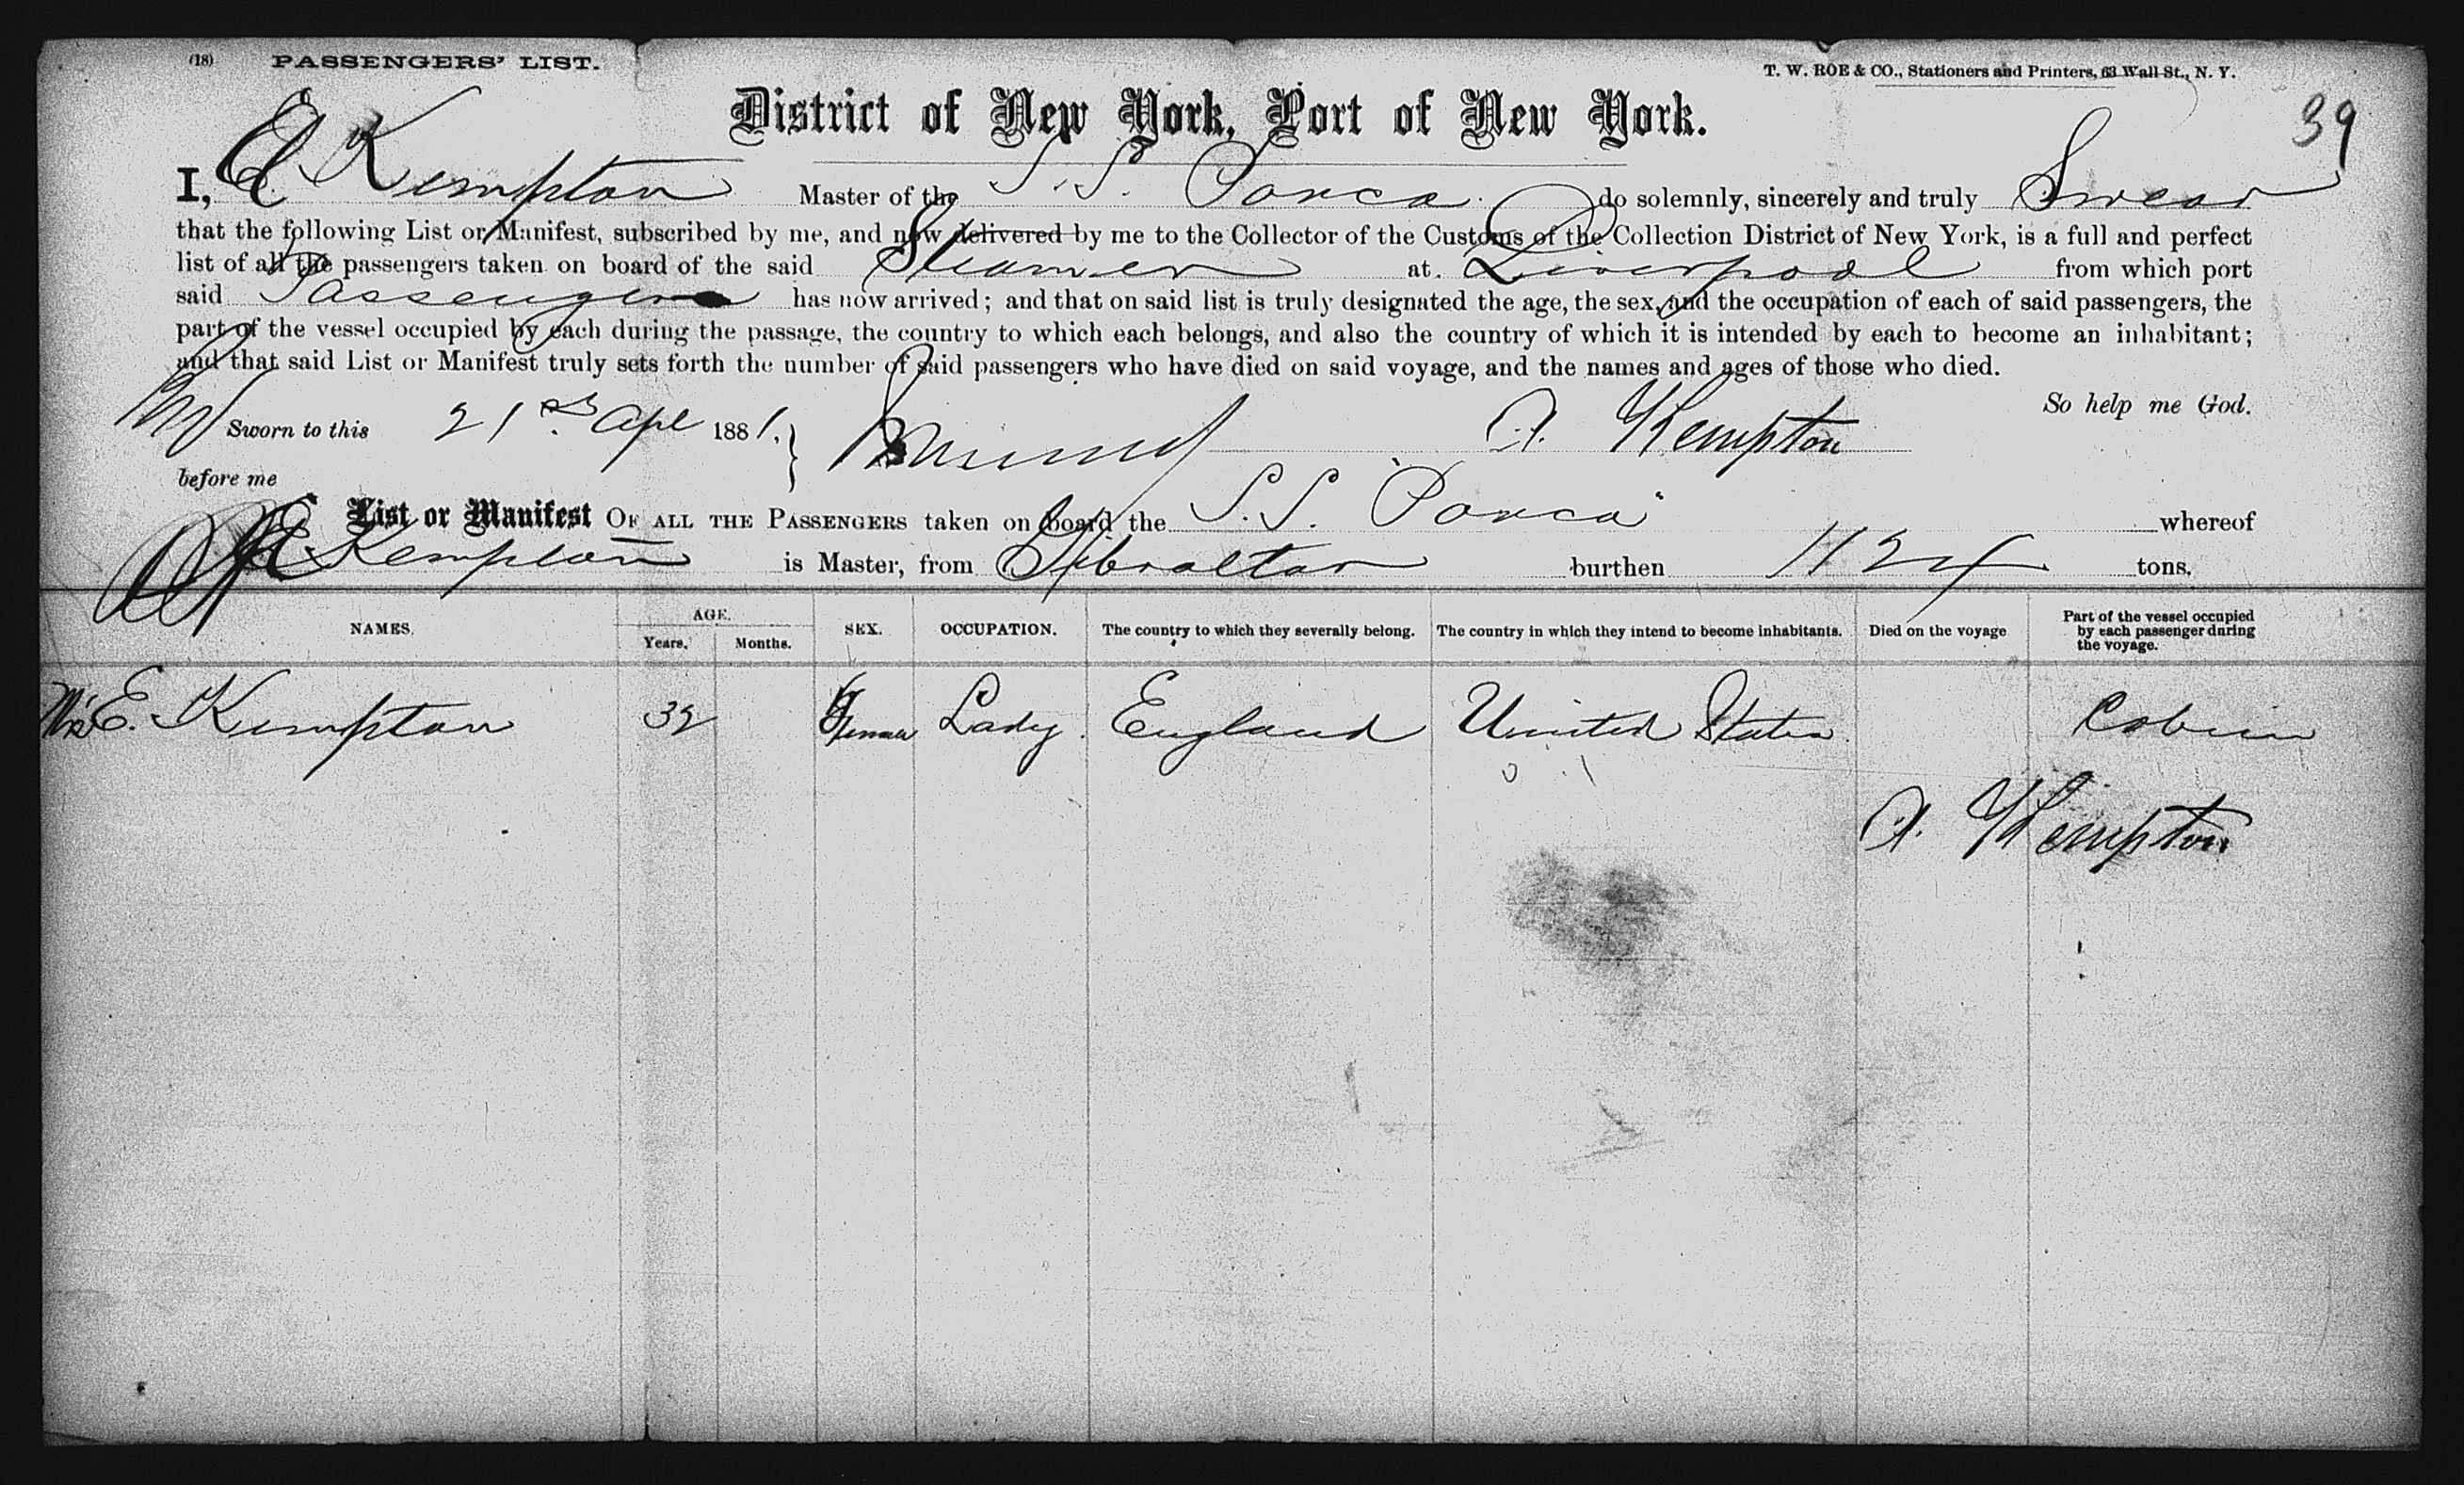 (18) PASSENGERS' LIST.
T. W. ROE & CO., Stationers and Printers, 63 Wall St., N. Y.
39
District of New York, Port of New York.
I, E Kempton Master of the S.S. do solemnly, sincerely and truly Swear
that the following List or Manifest, subscribed by me, and now delivered by me to the Collector of the Customs of the Collection District of New York, is a full and perfect
list of all the passengers taken on board of the said Steamer at Liverpool from which port
said Passengers has now arrived; and that on said list is truly designated the age, the sex, and the occupation of each of said passengers, the
part of the vessel occupied by each during the passage, the country to which each belongs, and also the country of which it is intended by each to become an inhabitant;
and that said List or Manifest truly sets forth the number of said passengers who have died on said voyage, and the names and ages of those who died.
So help me God.
Sworn to this 21st Apl 1881. Kempton
before me
List or Manifest OF ALL THE PASSENGERS taken on board the S.S. whereof
E Kempton is Master, from Gibraltar burthen 1124 tons.
NAMES. AGE. Years. Months. SEX. OCCUPATION. The country to which they severally belong. The country in which they intend to become inhabitants. Died on the voyage Part of the vessel occupied by each passenger during the voyage.
Mrs E. Kempton 32 Lady England United States Cabin
Kempton